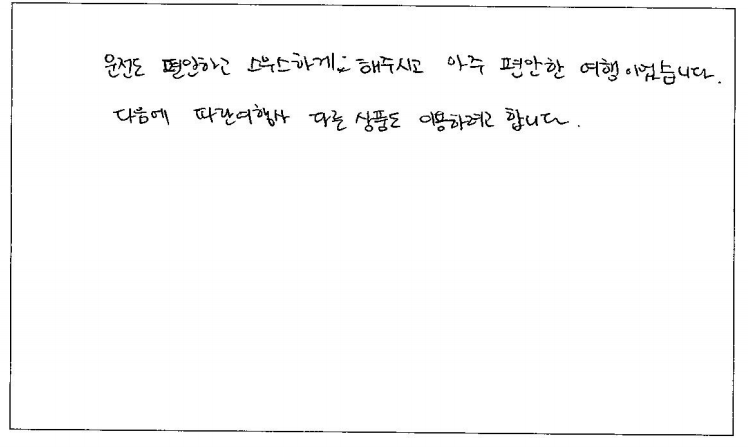 운전도 편안하고 스무스하게 해주시고 아주 편안한 여행이었습니다.
다음에 파란여행사 다른 상품도 이용하려고 합니다.